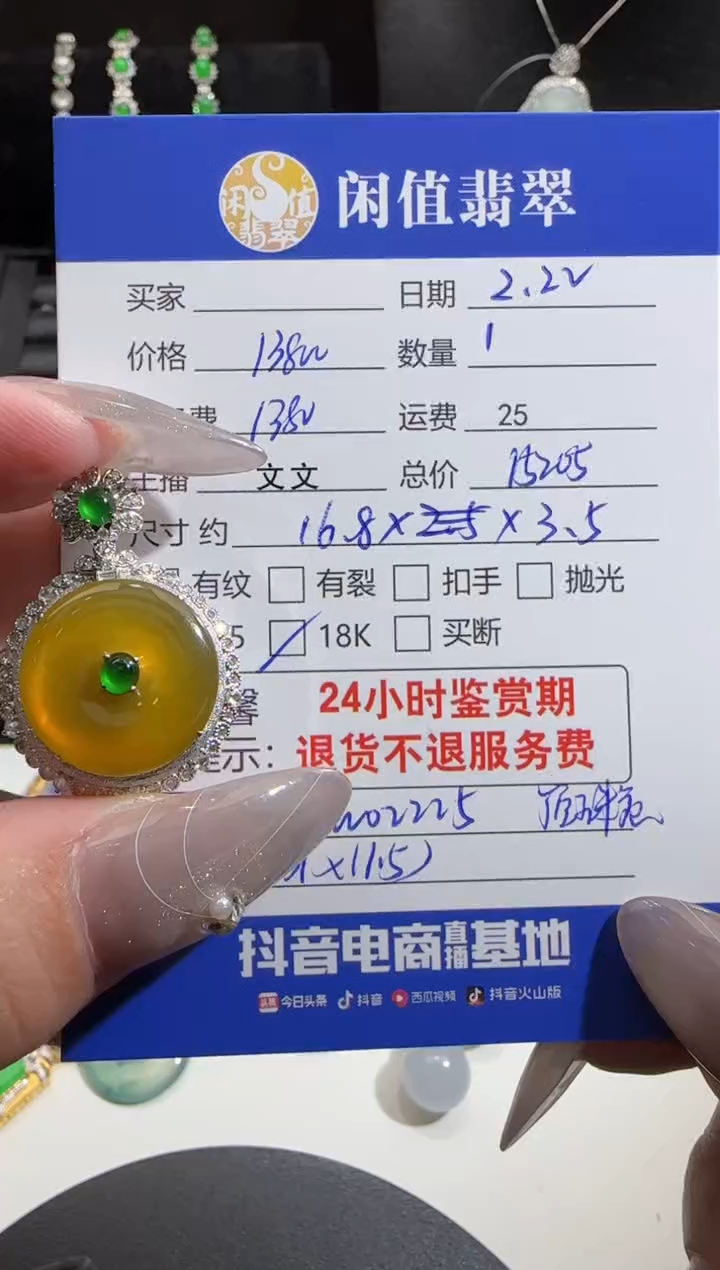 闲值翡翠 闲值翡翠
买家 日期 2.22
价格 13800 数量 1
费 1380 运费 25
主播 文文 总价 15205
尺寸 约 16.8 × × 3.5
有纹 有裂 扣手 抛光
5 18K 买断
馨 24小时鉴赏期
提示: 退货不退服务费
02225
×11.5)
抖音电商直播基地
头条 今日头条 抖音 西瓜视频 抖音火山版